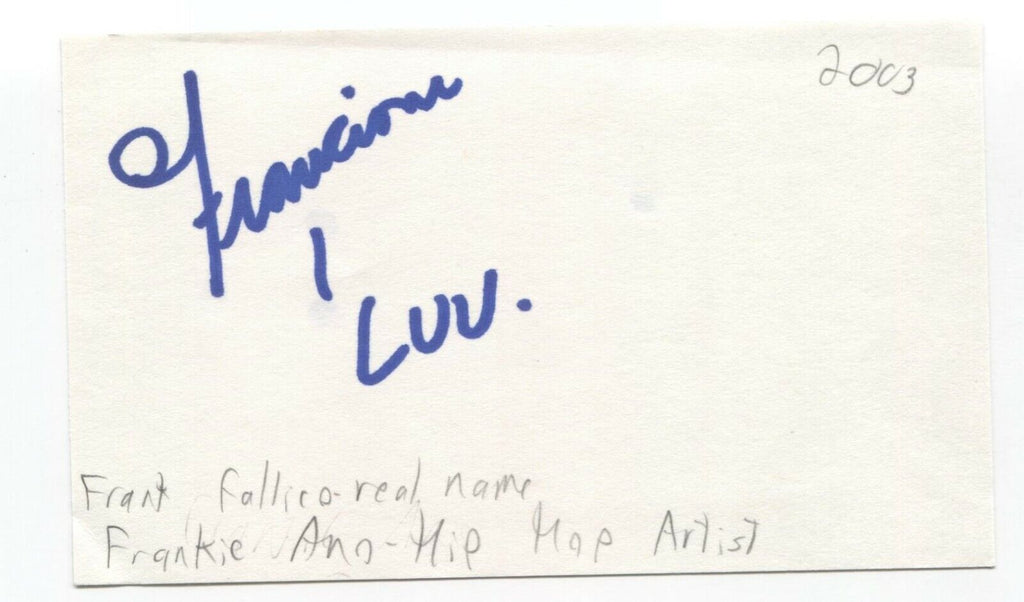 2003
I
Luv.
Frank Fallico-real name
Frankie Ano-Hip Hop Artist